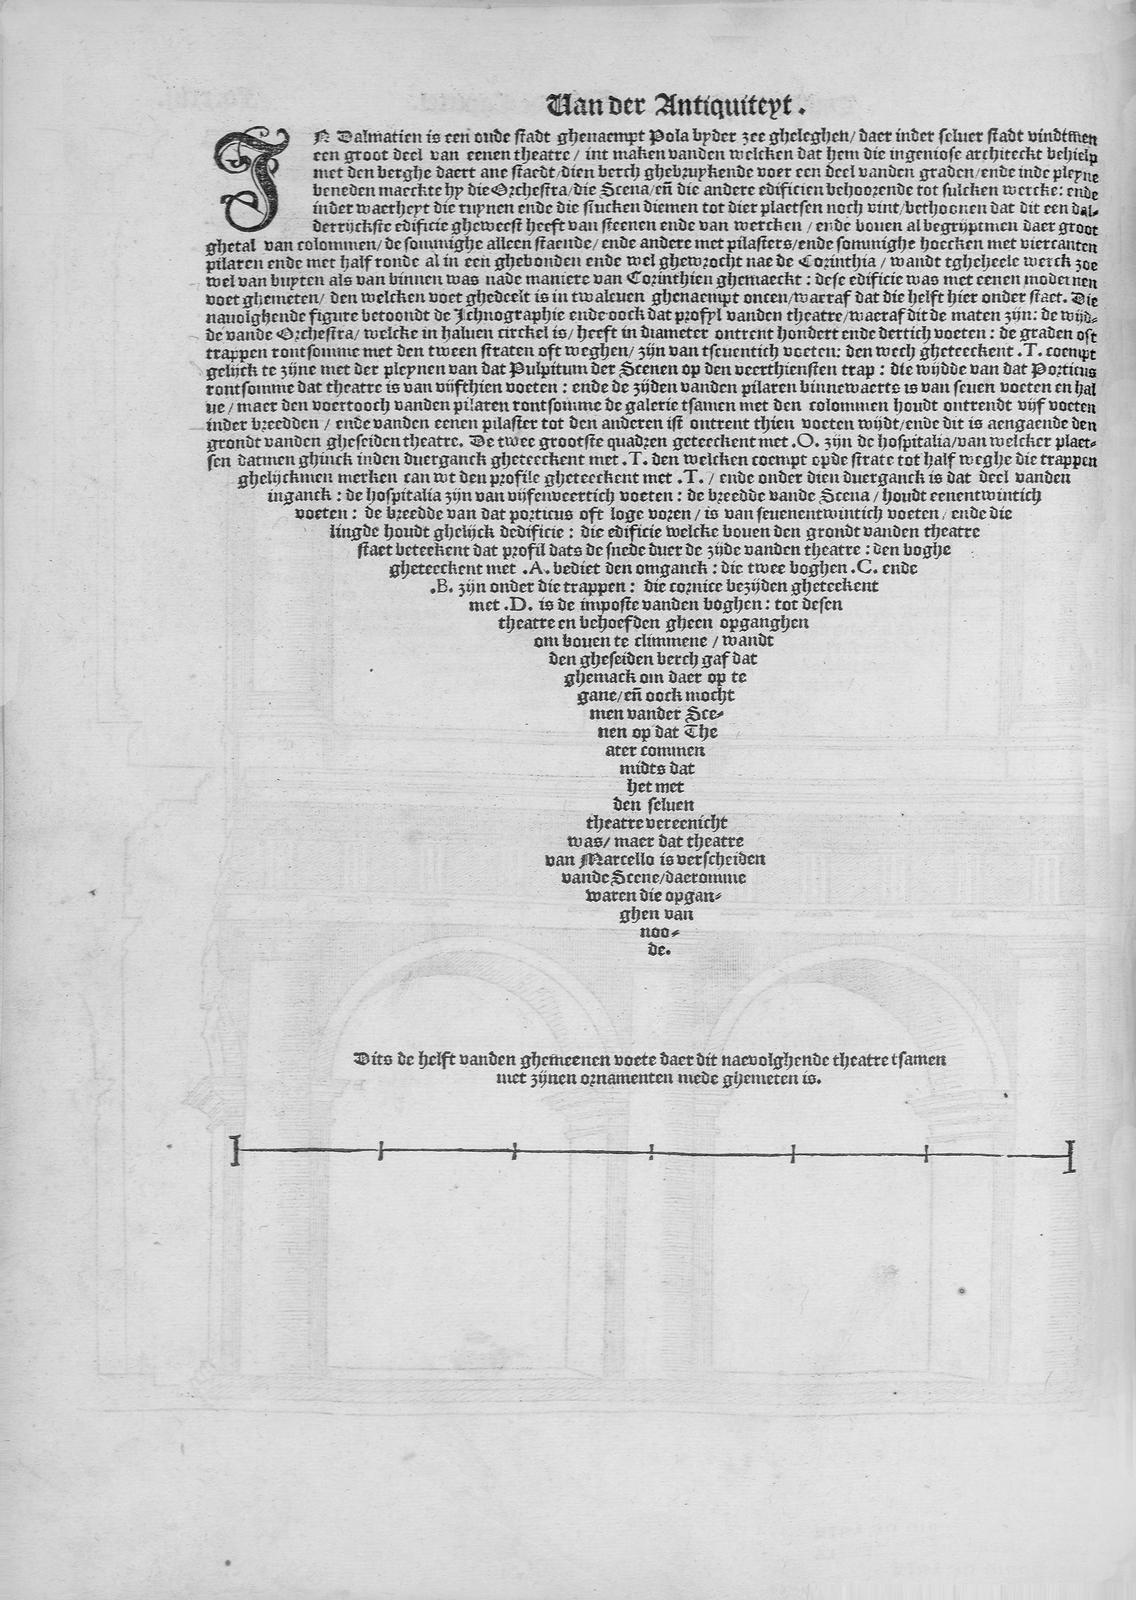 Van der Antiquiteyt.
IN Dalmatien is een oude stadt ghenaempt Pola byder zee gheleghen/ daer inder seluer stadt vindtmen
een groot deel van eenen theatre/ int maken vanden welcken dat hem die ingeniose architeckt behielp
met den berghe daert ane staedt/dien berch ghebruykende voer een deel vanden graden/ende inde pleyne
beneden maeckte hy die Orchestra/die Scena/eñ die andere edificien behoorende tot sulcken wercke: ende
inder waerheyt die ruynen ende die stucken diemen tot dier plaetsen noch vint/bethoonen dat dit een dal-
derrijckste edificie gheweest heeft van steenen ende van wercken / ende bouen al begrijptmen daer groot
ghetal van colommen/ de sommighe alleen staende/ ende andere met pilasters/ende sommighe hoecken met viercanten
pilaren ende met half ronde al in een ghebonden ende wel ghewrocht nae de Corinthia/ wandt tgheheele werck zoe
wel van buyten als van binnen was nade maniere van Corinthien ghemaeckt: dese edificie was met eenen modernen
voet ghemeten/ den welcken voet ghedeelt is in twaleuen ghenaempt oncen/waeraf dat die helft hier onder staet. Die
nauolghende figure betoondt de Ichnographie ende oock dat profyl vanden theatre/waeraf dit de maten zijn: de wijd-
de vande Orchestra/ welcke in haluen circkel is/ heeft in diameter ontrent hondert ende dertich voeten: de graden oft
trappen rontsomme met den tween straten oft weghen/ zijn van tseuentich voeten: den wech gheteeckent .T. coempt
gelijck te zijne met der pleynen van dat Pulpitum der Scenen op den veerthiensten trap: die wijdde van dat Porticus
rontsomme dat theatre is van vijfthien voeten: ende de zijden vanden pilaren binnewaerts is van seuen voeten en hal
ue/ maer den voertooch vanden pilaren rontsomme de galerie tsamen met den colommen houdt ontrendt vijf voeten
inder breedden / ende vanden eenen pilaster tot den anderen ist ontrent thien voeten wijdt/ende dit is aengaende den
grondt vanden gheseiden theatre. De twee grootste quadren geteeckent met .O. zijn de hospitalia/van welcker plaet-
sen datmen ghinck inden duerganck gheteeckent met .T. den welcken coempt opde strate tot half weghe die trappen
ghelijckmen merken can wt den profile gheteeckent met .T./ ende onder dien duerganck is dat deel vanden
inganck: de hospitalia zijn van vijfenveertich voeten: de breedde vande Scena/ houdt eenentwintich
voeten: de breedde van dat porticus oft loge voren/ is van seuenentwintich voeten/ ende die
lingde houdt ghelijck dedificie: die edificie welcke bouen den grondt vanden theatre
staet beteekent dat profil dats de snede duer de zijde vanden theatre: den boghe
gheteeckent met .A. bediet den omganck: die twee boghen .C. ende
.B. zijn onder die trappen: die cornice bezijden gheteekent
met .D. is de imposte vanden boghen: tot desen
theatre en behoefden gheen opganghen
om bouen te climmene/ wandt
den gheseiden berch gaf dat
ghemack om daer op te
gane/eñ oock mocht
men vander Sce-
nen op dat The
ater commen
midts dat
het met
den seluen
theatre vereenicht
was/ maer dat theatre
van Marcello is verscheiden
vande Scene/daeromme
waren die opgan-
ghen van
noo-
de.
Dits de helft vanden ghemeenen voete daer dit naevolghende theatre tsamen
met zijnen ornamenten mede ghemeten is.